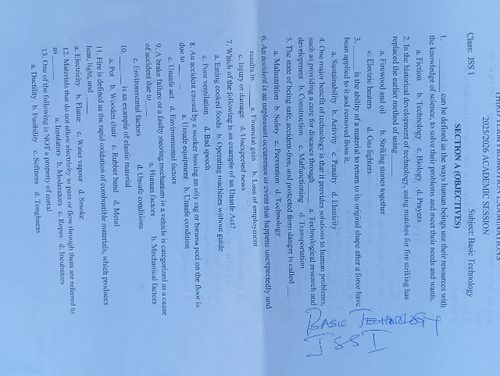 2025/2026 ACADEMIC SESSION
Class: JSS 1 Subject: Basic Technology
SECTION A (OBJECTIVES)
1. can be defined as the ways human beings use their resources with
the knowledge of science, to solve their problems and meet their needs and wants.
a. Fiction b. Technology c. Biology d. Prayers
2. In the historical development of technology, using matches for fire striking has
replaced the earlier method of using
a. Firewood and oil b. Striking stones together
c. Electric heaters d. Gas lighters
3. is the ability of a material to return to its original shape after a force have
bean applied to it and removed from it.
a. Sustainability b. Activity c. Penalty d. Elasticity
4. One major benefit of technology is that it provides solutions to human problems,
such as providing a cure for diseases through a. Technological research and
development b. Construction c. Malfunctioning d. Transportation
5. The state of being safe, accident-free, and protected from danger is called
a. Malnutrition b. Safety c. Prevention d. Technology
6. An accident is an unpleasant experience or event that happens unexpectedly and
results in a. Financial gain b. Loss of employment
c. Injury or damage d. Unexpected news
7. Which of the following is an example of an Unsafe Act?
a. Eating cooked foods b. Operating machines without guide
c. Poor ventilation d. Bad speech
8. An accident caused by a worker leaving an oily rag or banana peel on the floor is
due to a. Unsafe equipment b. Unsafe condition
c. Unsafe act d. Environmental factors
9. A brake failure or a faulty steering mechanism in a vehicle is categorized as a cause
of accident due to a. Human factors b. Mechanical factors
c. Environmental factors d. Road conditions
10. is an example of elastic material
a. Pot b. Wooden chair c. Rubber band d. Metal
11. Fire is defined as the rapid oxidation of combustible materials, which produces
heat, light, and
a. Electricity b. Flame c. Water vapour d. Smoke
12. Materials that do not allow electricity to pass or flow through them are referred to
as a. Insulators b. Moderators c. Ropes d. Incubators
13. One of the following is NOT a property of metal
a. Ductility b. Fusibility c. Softness d. Toughness
BASIC TECHNOLOGY
JSS I